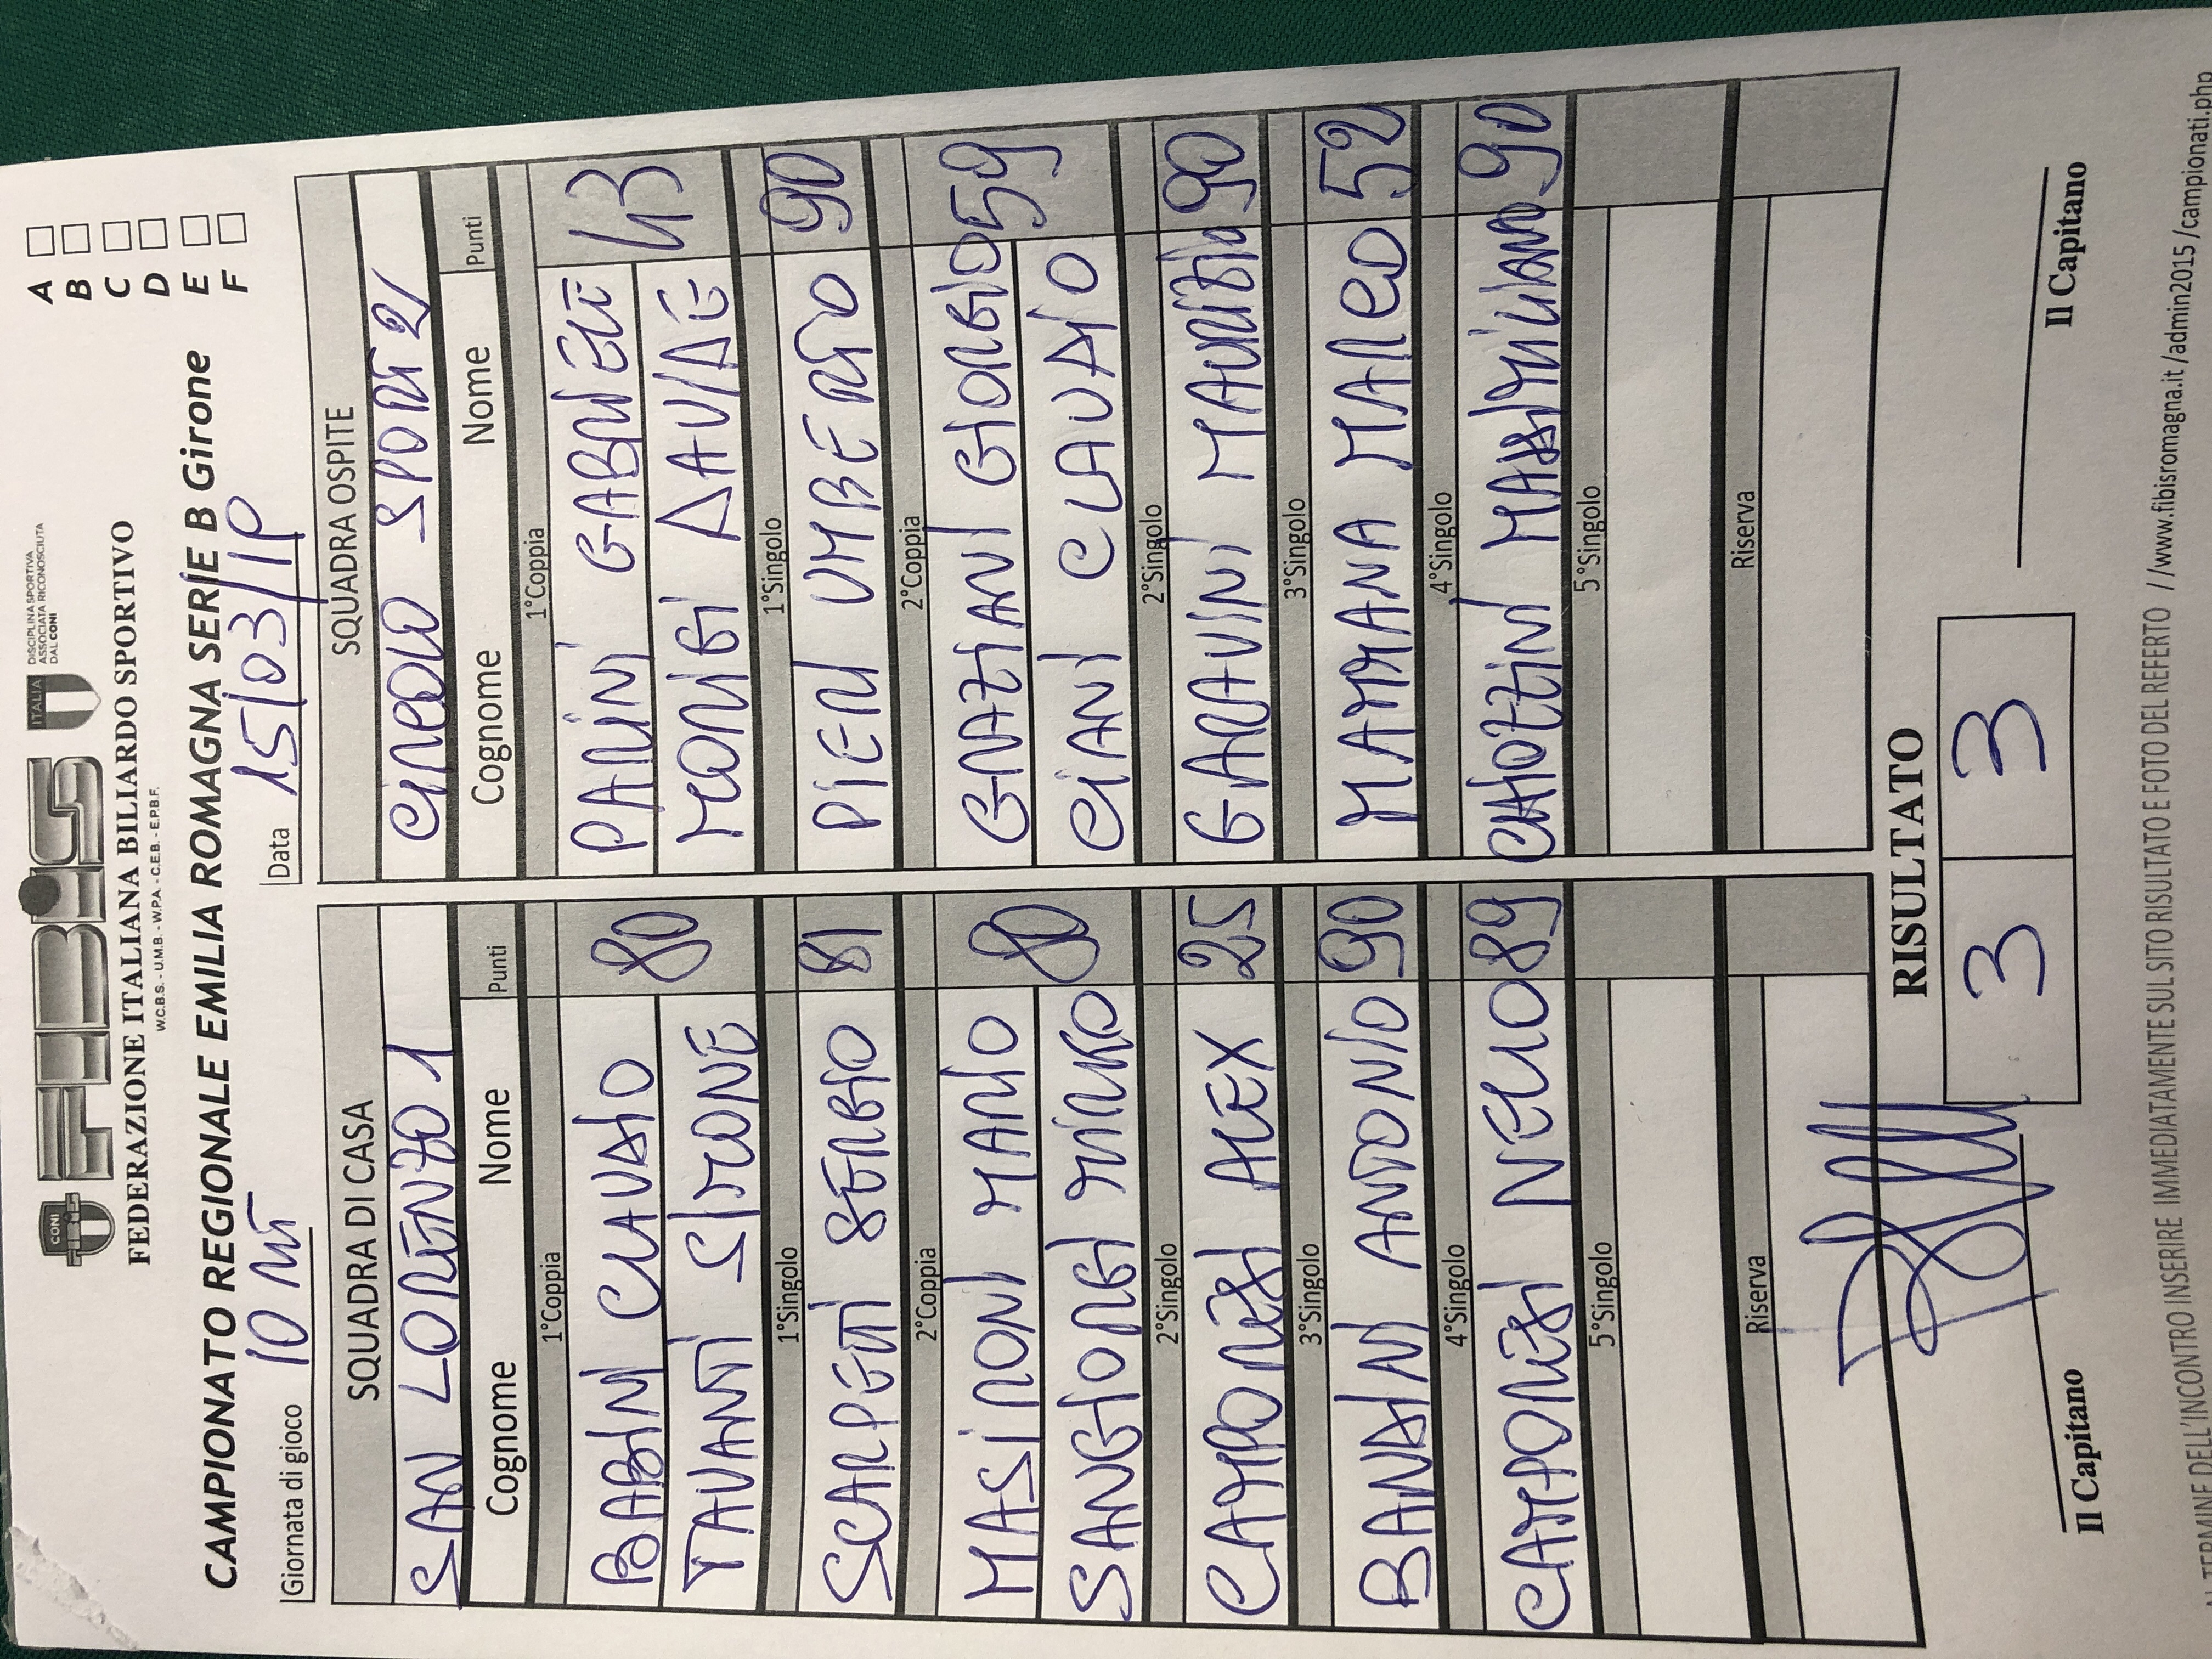 CONI FIBIS ITALIA DISCIPLINA SPORTIVA
ASSOCIATA RICONOSCIUTA
DAL CONI
FEDERAZIONE ITALIANA BILIARDO SPORTIVO
W.C.B.S. - U.M.B. - W.P.A. - C.E.B. - E.P.B.F.
A
B
C
D
E
F
CAMPIONATO REGIONALE EMILIA ROMAGNA SERIE B Girone
Giornata di gioco 10 Data 15/03/19
SQUADRA DI CASA SQUADRA OSPITE
SAN LORENZO 1 CIRCOLO SPORT 21
Cognome Nome Punti Cognome Nome Punti
1°Coppia 1°Coppia
BABINI CLAUDIO 80 PALINI GABRIELE 43
TAVANTI SIMONE MORIGI DAVIDE
1°Singolo 1°Singolo
SCARPETTI SERGIO 81 PIERI UMBERTO 90
2°Coppia 2°Coppia
MASIRONI MARIO 80 GRAZIANI GIORGIO 59
SANGIORGI MIRKO CIANI CLAUDIO
2°Singolo 2°Singolo
CAMPORESI ALEX 25 GARAVINI MAURIZIO 90
3°Singolo 3°Singolo
BANDINI ANTONIO 90 MAMMANA MARCO 52
4°Singolo 4°Singolo
CAMPORESI NELLO 89 CHIOZZINI MASSIMILIANO 90
5°Singolo 5°Singolo
Riserva Riserva
RISULTATO
3 3
Il Capitano Il Capitano
AL TERMINE DELL'INCONTRO INSERIRE IMMEDIATAMENTE SUL SITO RISULTATO E FOTO DEL REFERTO //www.fibisromagna.it/admin2015/campionati.php